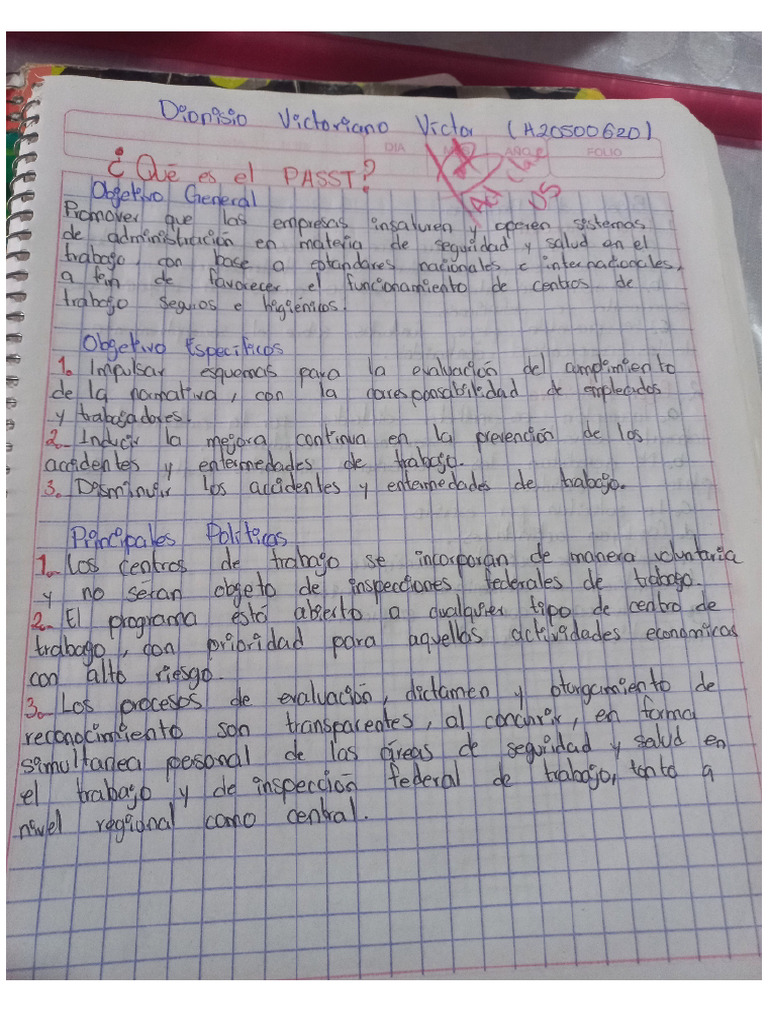 Dionisio Victoriano Victor (A20500620)
DIA AÑO FOLIO
¿Qué es el PASST?
Objetivo General
Promover que las empresas insaluren y operen sistemas
de administración en materia de seguridad y salud en el
trabajo, con base a estandares nacionales e internacionales,
a fin de favorecer el funcionamiento de centros de
trabajo seguros e higiénicos.
Objetivo Especificos
1. Impulsar esquemas para la evaluación del cumplimiento
de la normativa, con la corresponsabilidad de empleados
y trabajadores.
2. Inducir la mejora continua en la prevención de los
accidentes y enfermedades de trabajo.
3. Disminuir los accidentes y enfermedades de trabajo.
Principales Politicas
1. Los centros de trabajo se incorporan de manera voluntaria
y no serán objeto de inspecciones federales de trabajo.
2. El programa está abierto a cualquier tipo de centro de
trabajo, con prioridad para aquellas actividades economicas
con alto riesgo.
3. Los procesos de evaluación, dictamen y otorgamiento de
reconocimiento son transparentes, al concluir, en forma
simultanea personal de las áreas de seguridad y salud en
el trabajo y de inspección federal de trabajo, tanto a
nivel regional como central.